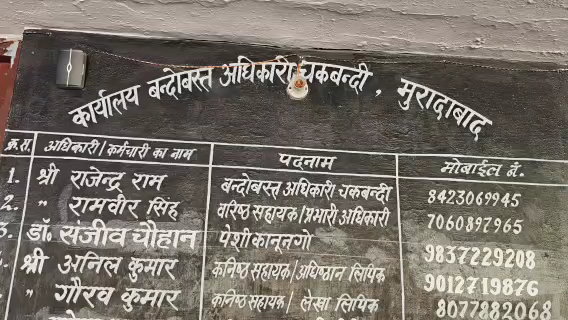 कार्यालय बन्दोबस्त अधिकारी चकबन्दी, मुरादाबाद
क्र.स. अधिकारी/कर्मचारी का नाम पदनाम मोबाईल नं.
1. श्री राजेन्द्र राम बन्दोबस्त अधिकारी चकबन्दी 8423069945
2. " रामवीर सिंह वरिष्ठ सहायक/प्रभारी अधिकारी 7060897965
3. डॉ. संजीव चौहान पेशीकानूनगो 9837229208
श्री अनिल कुमार कनिष्ठ सहायक/अधिष्ठान लिपिक 9012719876
" गौरव कुमार कनिष्ठ सहायक/लेखा लिपिक 8077882068